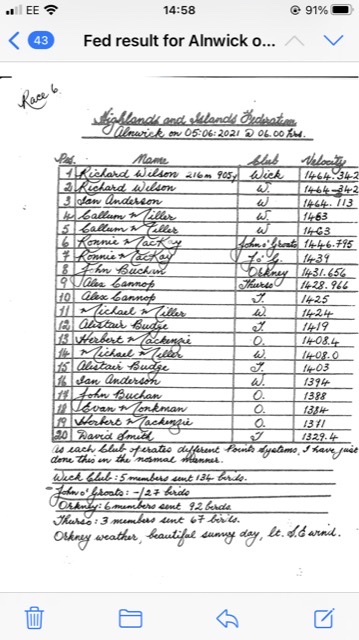 EE 14:58 91%
43 Fed result for Alnwick o...
Race 6.
Highlands and Islands Federation
Alnwick on 05:06:2021 @ 06.00 hrs.
Pos. Name Club Velocity
1 Richard Wilson 216m 905y Wick 1464.342
2 Richard Wilson W. 1464.342
3 Ian Anderson W. 1464.113
4 Callum Miller W. 1463
5 Callum Miller W. 1463
6 Ronnie MacKay John o' Groats 1446.795
7 Ronnie MacKay J.o'G. 1439
8 John Buchan Orkney 1431.656
9 Alex Cannop Thurso 1428.966
10 Alex Cannop T. 1425
11 Michael Miller W. 1424
12 Alistair Budge T. 1419
13 Herbert Mackenzie O. 1408.4
14 Michael Miller W. 1408.0
15 Alistair Budge T. 1403
16 Ian Anderson W. 1394
17 John Buchan O. 1388
18 Evan Monkman O. 1384
19 Herbert Mackenzie O. 1371
20 David Smith T 1329.4
As each Club operates different Points Systems, I have just
done this in the normal manner.
Wick Club: 5 members sent 134 birds.
John o' Groats: -/27 birds
Orkney: 6 members sent 92 birds
Thurso: 3 members sent 67 birds.
Orkney weather, beautiful sunny day, lt. S.E wind.